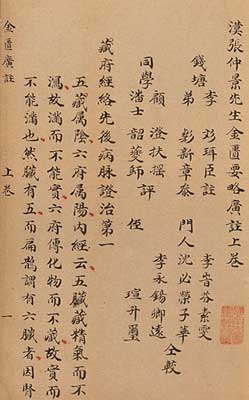 漢張仲景先生金匱要略廣註上卷
錢塘 李 彣珥臣註 李 芬素雯
弟 彭新章泰 門人 沈必榮子華 仝較
顧 澄扶搖 李永錫卿遠
同學 潘士韶夔師 評 侄 瑄升璽
藏府經絡先後病脉證治第一
五藏屬陰六府屬陽內經云五臟藏精氣而不
瀉故滿而不能實六府傳化物而不藏故實而
不能滿也然臟有五而扁鵲謂有六臟者因腎
金匱廣註 上卷 一